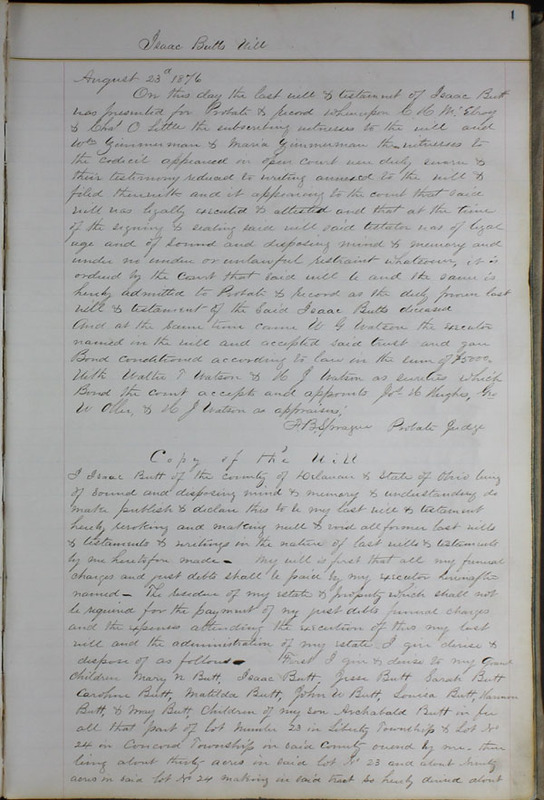 1
Isaac Butts Will
August 23d 1876
On this day the last will & testament of Isaac Butt
was presented for Probate & record whereupon C H McElroy
& Chas C Little the subscribing witnesses to the will and
Wm Zimmerman & Maria Zimmerman the witnesses to
the codicil appeared in open court were duly sworn &
their testimony reduced to writing annexed to the will &
filed therewith and it appearing to the court that said
will was legally executed & attested and that at the time
of the signing & sealing said will said testator was of legal
age and of sound and disposing mind & memory and
under no undue or unlawful restraint whatsoever, it is
ordered by the Court that said will be and the same is
hereby admitted to Probate & record as the duly proven last
will & testament of the said Isaac Butts deceased
And at the same time came W G Watson the executor
named in the will and accepted said trust and gave
Bond conditioned according to law in the sum of $5000-
With Walter T Watson & H J Watson as sureties which
Bond the court accepts and appoints Jno H Hughes, Geo
W & H J Watson as appraisers;
F B Sprague Probate Judge
Copy of the Will
I Isaac Butt of the county of Delaware & State of Ohio being
of sound and disposing mind & memory & understanding do
make publish & declare this to be my last will & testament
hereby revoking and making null & void all former last wills
& testaments & writings in the nature of last wills & testaments
by me heretofore made - My will is first that all my funeral
charges and just debts shall be paid by my executor hereinafter
named - The residue of my estate & property which shall not
be required for the payment of my just debts funeral charges
and the expenses attending the execution of this my last
will and the administration of my estate I give devise &
dispose of as follows - First I give & devise to my Grand
children Mary N Butt, Isaac Butt, Jesse Butt Sarah Butt
Caroline Butt, Matilda Butt, John W Butt, Louisa Butt, Harmon
Butt, & May Butt, Children of my son Archabald Butt in fee
all that part of Lot Number 23 in Liberty Township & Lot No
24 in Concord Township in said County owned by me. there
being about thirty acres in said lot No 23 and about ninety
acres in said lot No 24 making in said tract so hereby devised about